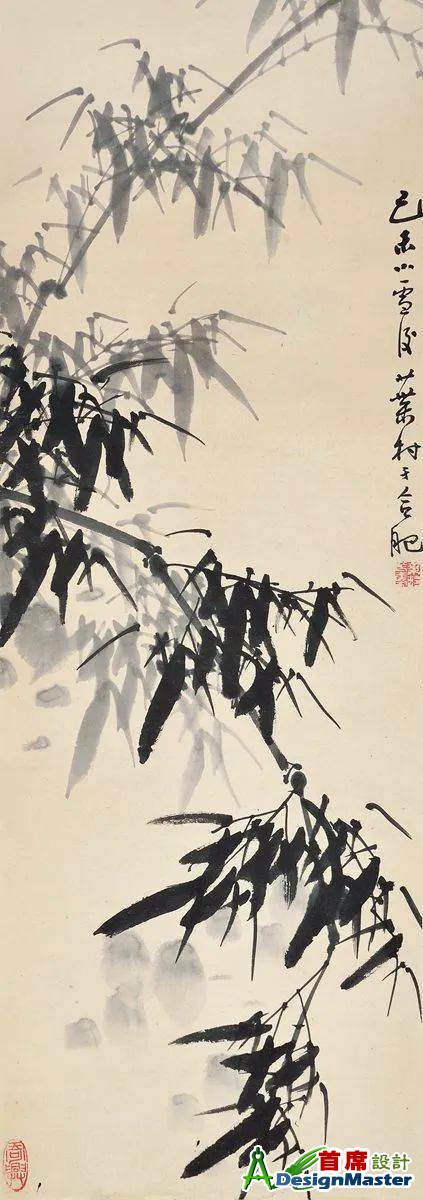 己未小雪後葉村于合肥
首席設計
ADesignMaster